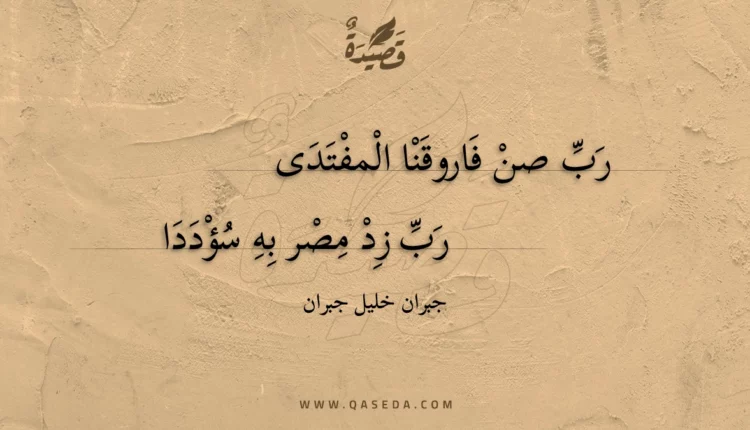 قَصِيْدَةٌ
رَبِّ صنْ فَاروقَنْا الْمفْتَدَى
رَبِّ زِدْ مِصْر بِهِ سُؤْدَدَا
جبران خليل جبران
WWW.QASEDA.COM